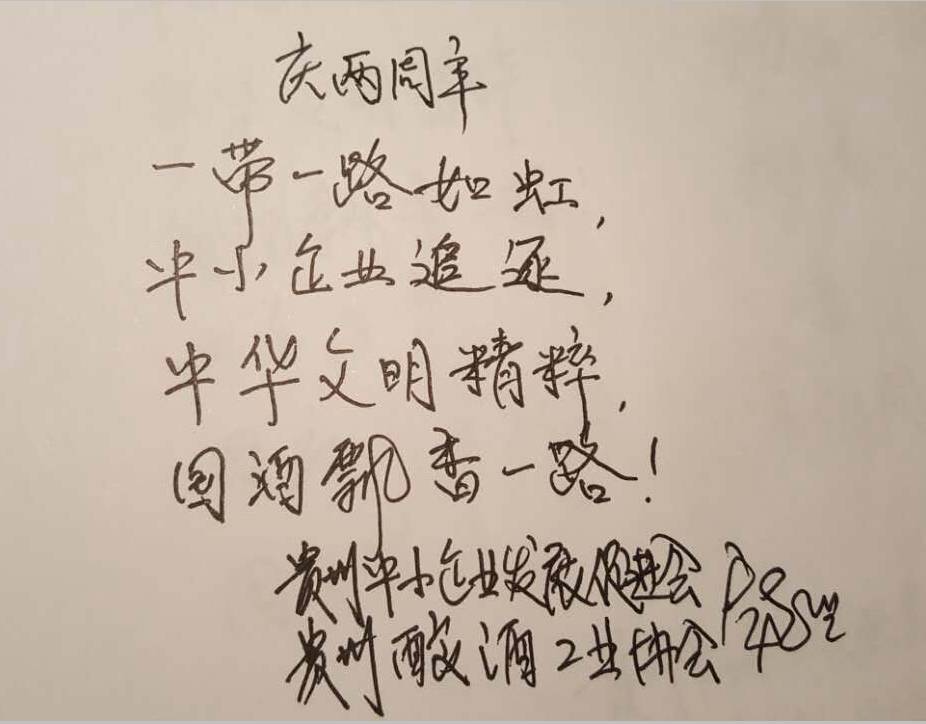 庆两周年
一带一路如虹,
中小企业追逐,
中华文明精粹,
国酒飘香一路!
贵州中小企业发展促进会
贵州酿酒工业协会